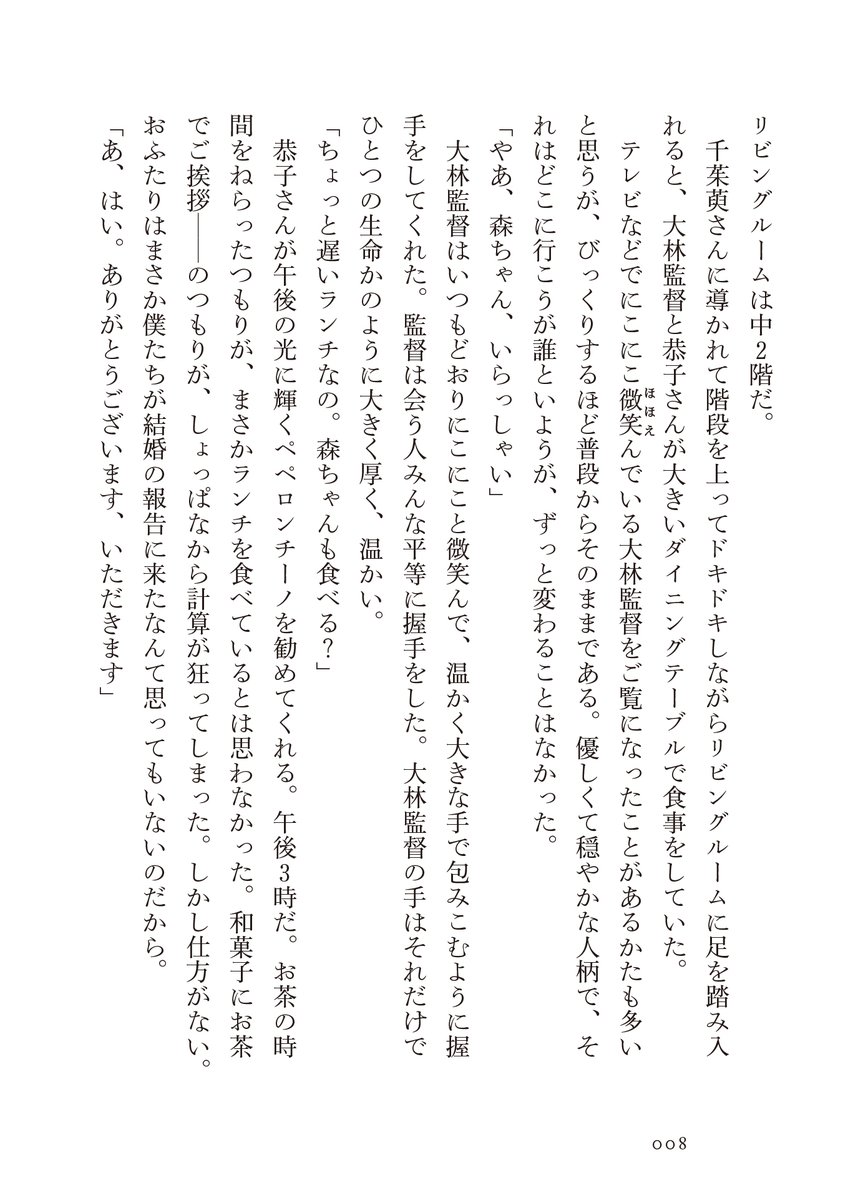 リビングルームは中2階だ。
千茱萸さんに導かれて階段を上ってドキドキしながらリビングルームに足を踏み入
れると、大林監督と恭子さんが大きいダイニングテーブルで食事をしていた。
テレビなどでにこにこ微笑んでいる大林監督をご覧になったことがあるかたも多い
ほほえ
と思うが、びっくりするほど普段からそのままである。優しくて穏やかな人柄で、そ
れはどこに行こうが誰といようが、ずっと変わることはなかった。
「やあ、森ちゃん、いらっしゃい」
大林監督はいつもどおりにこにこと微笑んで、温かく大きな手で包みこむように握
手をしてくれた。監督は会う人みんな平等に握手をした。大林監督の手はそれだけで
ひとつの生命かのように大きく厚く、温かい。
「ちょっと遅いランチなの。森ちゃんも食べる？」
恭子さんが午後の光に輝くペペロンチーノを勧めてくれる。午後3時だ。お茶の時
間をねらったつもりが、まさかランチを食べているとは思わなかった。和菓子にお茶
でご挨拶──のつもりが、しょっぱなから計算が狂ってしまった。しかし仕方がない。
おふたりはまさか僕たちが結婚の報告に来たなんて思ってもいないのだから。
「あ、はい。ありがとうございます、いただきます」
008